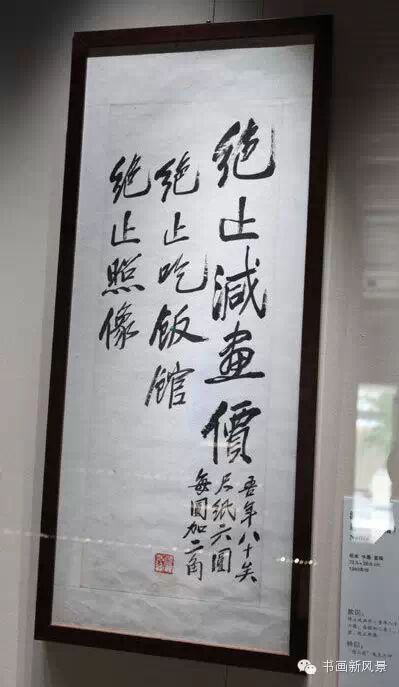 绝止減畫價
吾年八十矣
尺紙六圓
每圓加二角
绝止吃飯館
绝止照像
书画新风景